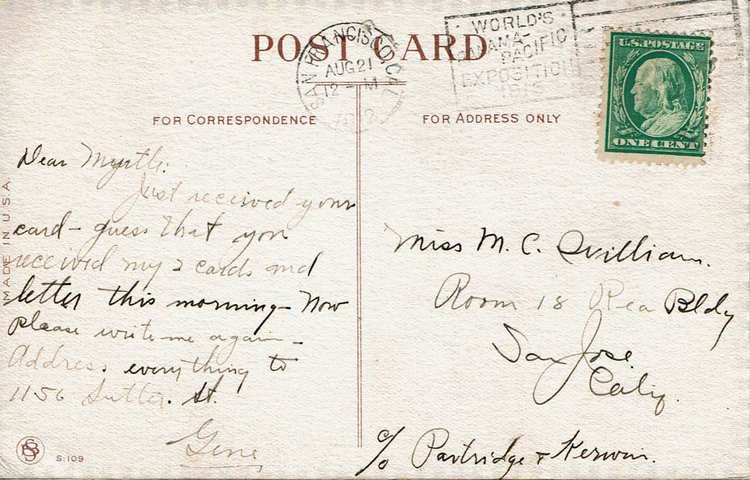 POST CARD
SAN FRANCISCO, CAL.
AUG 21
12 - M
WORLD'S
PANAMA-
PACIFIC
EXPOSITION
1915
U.S. POSTAGE
ONE CENT
FOR CORRESPONDENCE
FOR ADDRESS ONLY
MADE IN U.S.A.
Dear Myrtle:
Just received your
card - guess that you
received my 2 cards and
letter this morning - Now
please write me again -
Address everything to
1156 Sutter St.
Gene
S-109
Miss M. C.
Room 18 Rea Bldg
San Jose
Calif.
c/o Partridge & Kerwin.